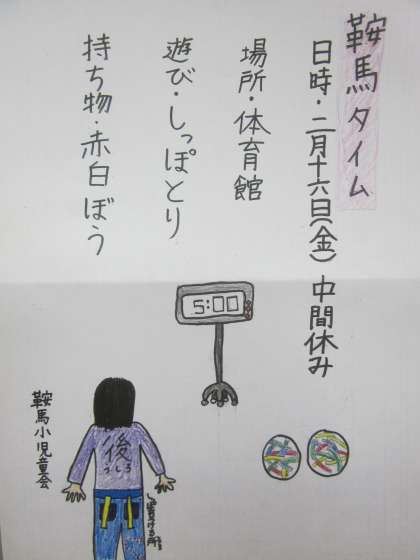 鞍馬タイム
日時・二月十六日(金) 中間休み
場所・体育館
遊び・しっぽとり
持ち物・赤白ぼう
5:00
後
うしろ
鞍馬小児童会